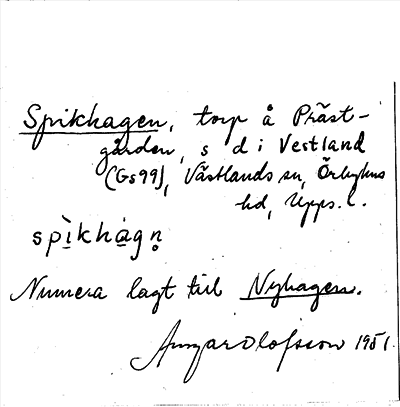 Spikhagen, torp å Präst-
gården, s d i Vestland
(Gs99), Västlands sn, Örbyhus
hd, Upps. l.
spìkhàgn̥
Numera lagt till Nyhagen.
Olofsson 1951.